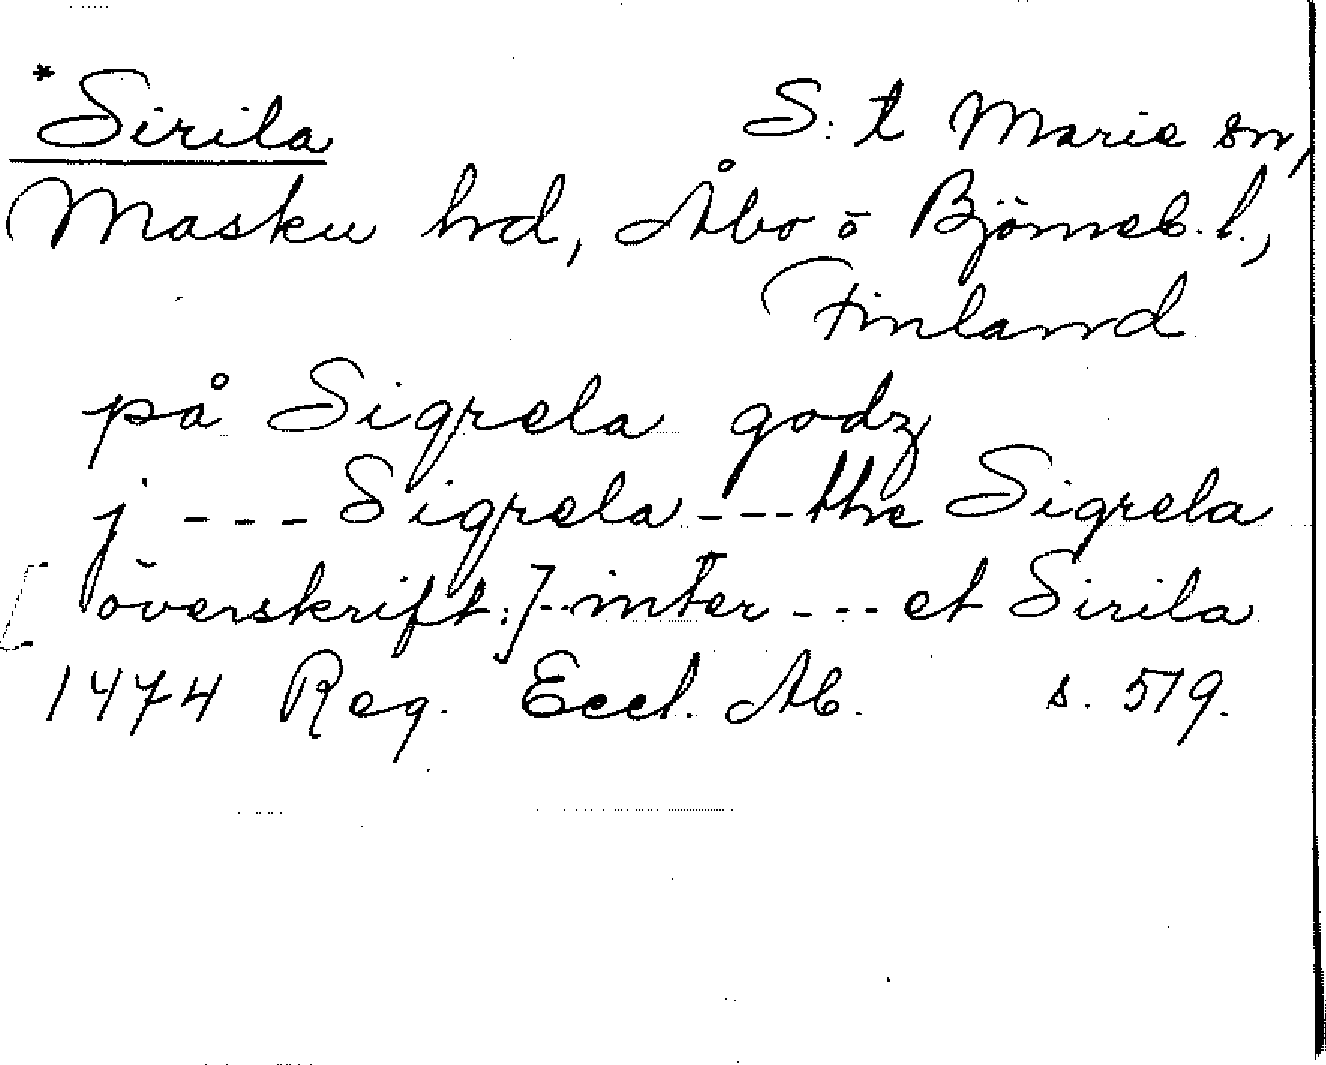 *Sirila S:t Marie sn,
Masku hd, Åbo o Björneb. l.,
Finland
på Sigrela godz
j --- Sigrela --- the Sigrela
[överskrift.] -- inter --- et Sirila
1474 Reg. Eccl. Ab. s. 519.